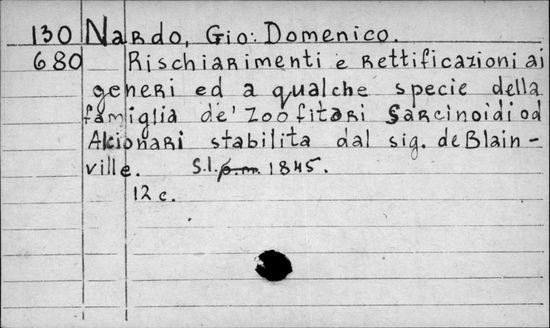 130 Nardo, Gio: Domenico.
680 Rischiarimenti e rettificazioni ai
generi ed a qualche specie della
famiglia de' Zoofitari Sarcinoidi od
Alcionari stabilita dal sig. de Blain-
ville. S.l. p.m. 1845.
12 c.